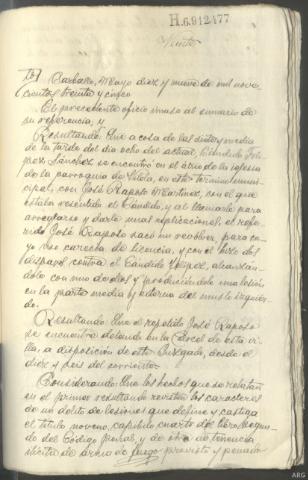 H.6.912477
Veinte
Carballo, Mayo diez y nueve de mil nove-
cientos treinta y cinco
El precedente oficio únase al sumario de
su referencia, y
Resultando: Que a cosa de las siete y media
de la tarde del día ocho del actual, Cándido
Sánchez se encontró en el atrio de la iglesia
de la parroquia de en este término muni-
cipal, con José Raposo Martínez, con el que
estaba resentido el Cándido, y al llamarle para
arreglarse y darle unas explicaciones, el refe-
rido José Raposo sacó un revolver, para cu-
yo uso carecía de licencia, y con el hizo dos
disparos contra el Cándido alcanzan-
dole con uno de ellos y produciéndole una lesión
en la parte media y externa del muslo izquier-
do.
Resultando: Que el repetido José Raposo
se encuentra detenido en la Cárcel de esta vi-
lla, a disposición de este Juzgado, desde el
diez y seis del corriente.
Considerando: Que los hechos que se relatan
en el primer resultando revisten los caracteres
de un delito de lesiones que define y castiga
el título noveno, capítulo cuarto del libro segun-
do del Código penal, y de otro de tenencia
ilícita de arma de fuego previsto y penado
ARG